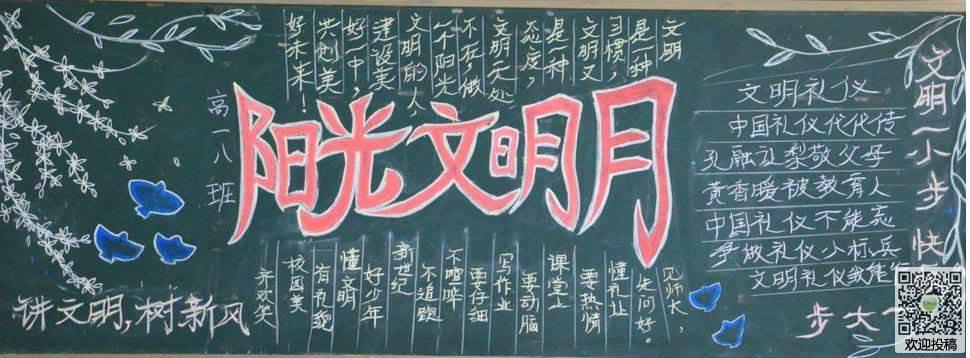 文明
是一种
习惯,
文明又
是一种
态度,
文明无处
不在,做
一个阳光
文明的人,
建设美
好一中,
共创美
好未来!
高一八班
阳光文明月
见师长,
先问好。
懂礼让
要热情
课堂上
要动脑
写作业
要仔细
不喧哗
不追跑
新世纪
好少年
懂文明
有礼貌
校园美
齐欢笑
讲文明,树新风
文明礼仪
中国礼仪代代传
孔融让梨敬父母
黄香暖被教育人
中国礼仪不能忘
争做礼仪小标兵
文明礼仪我能
文明一小步
快
步大一
欢迎投稿